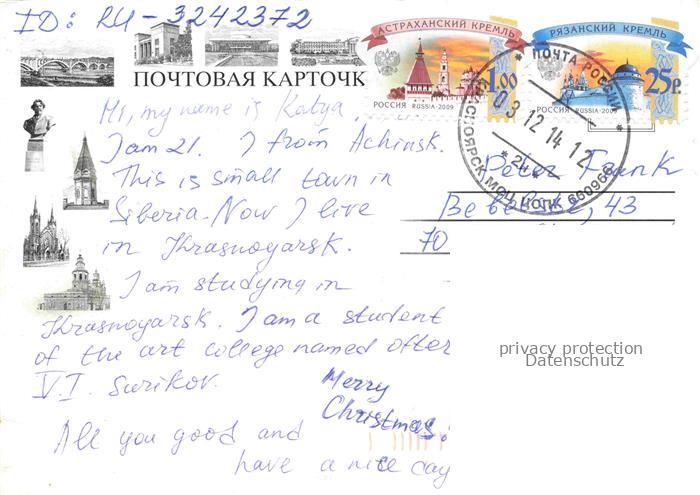 ID: RU-3242372
АСТРАХАНСКИЙ КРЕМЛЬ
РЯЗАНСКИЙ КРЕМЛЬ
1.00
25р.
РОССИЯ RUSSIA·2009
РОССИЯ RUSSIA·2009
ПОЧТА РОССИИ
03 12 14 12
КРАСНОЯРСК МСЦ
ПОЧТОВАЯ КАРТОЧК
Hi, my name is Katya,
I am 21. I from Achinsk.
This is small town in
Siberia. Now I live
in Krasnoyarsk.
I am studying in
Krasnoyarsk. I am a student
of the art college named ofter
V.I. Surikov.
Merry
Christmas!
All you good and
have a nice day
Peter Frank
43
70
privacy protection
Datenschutz